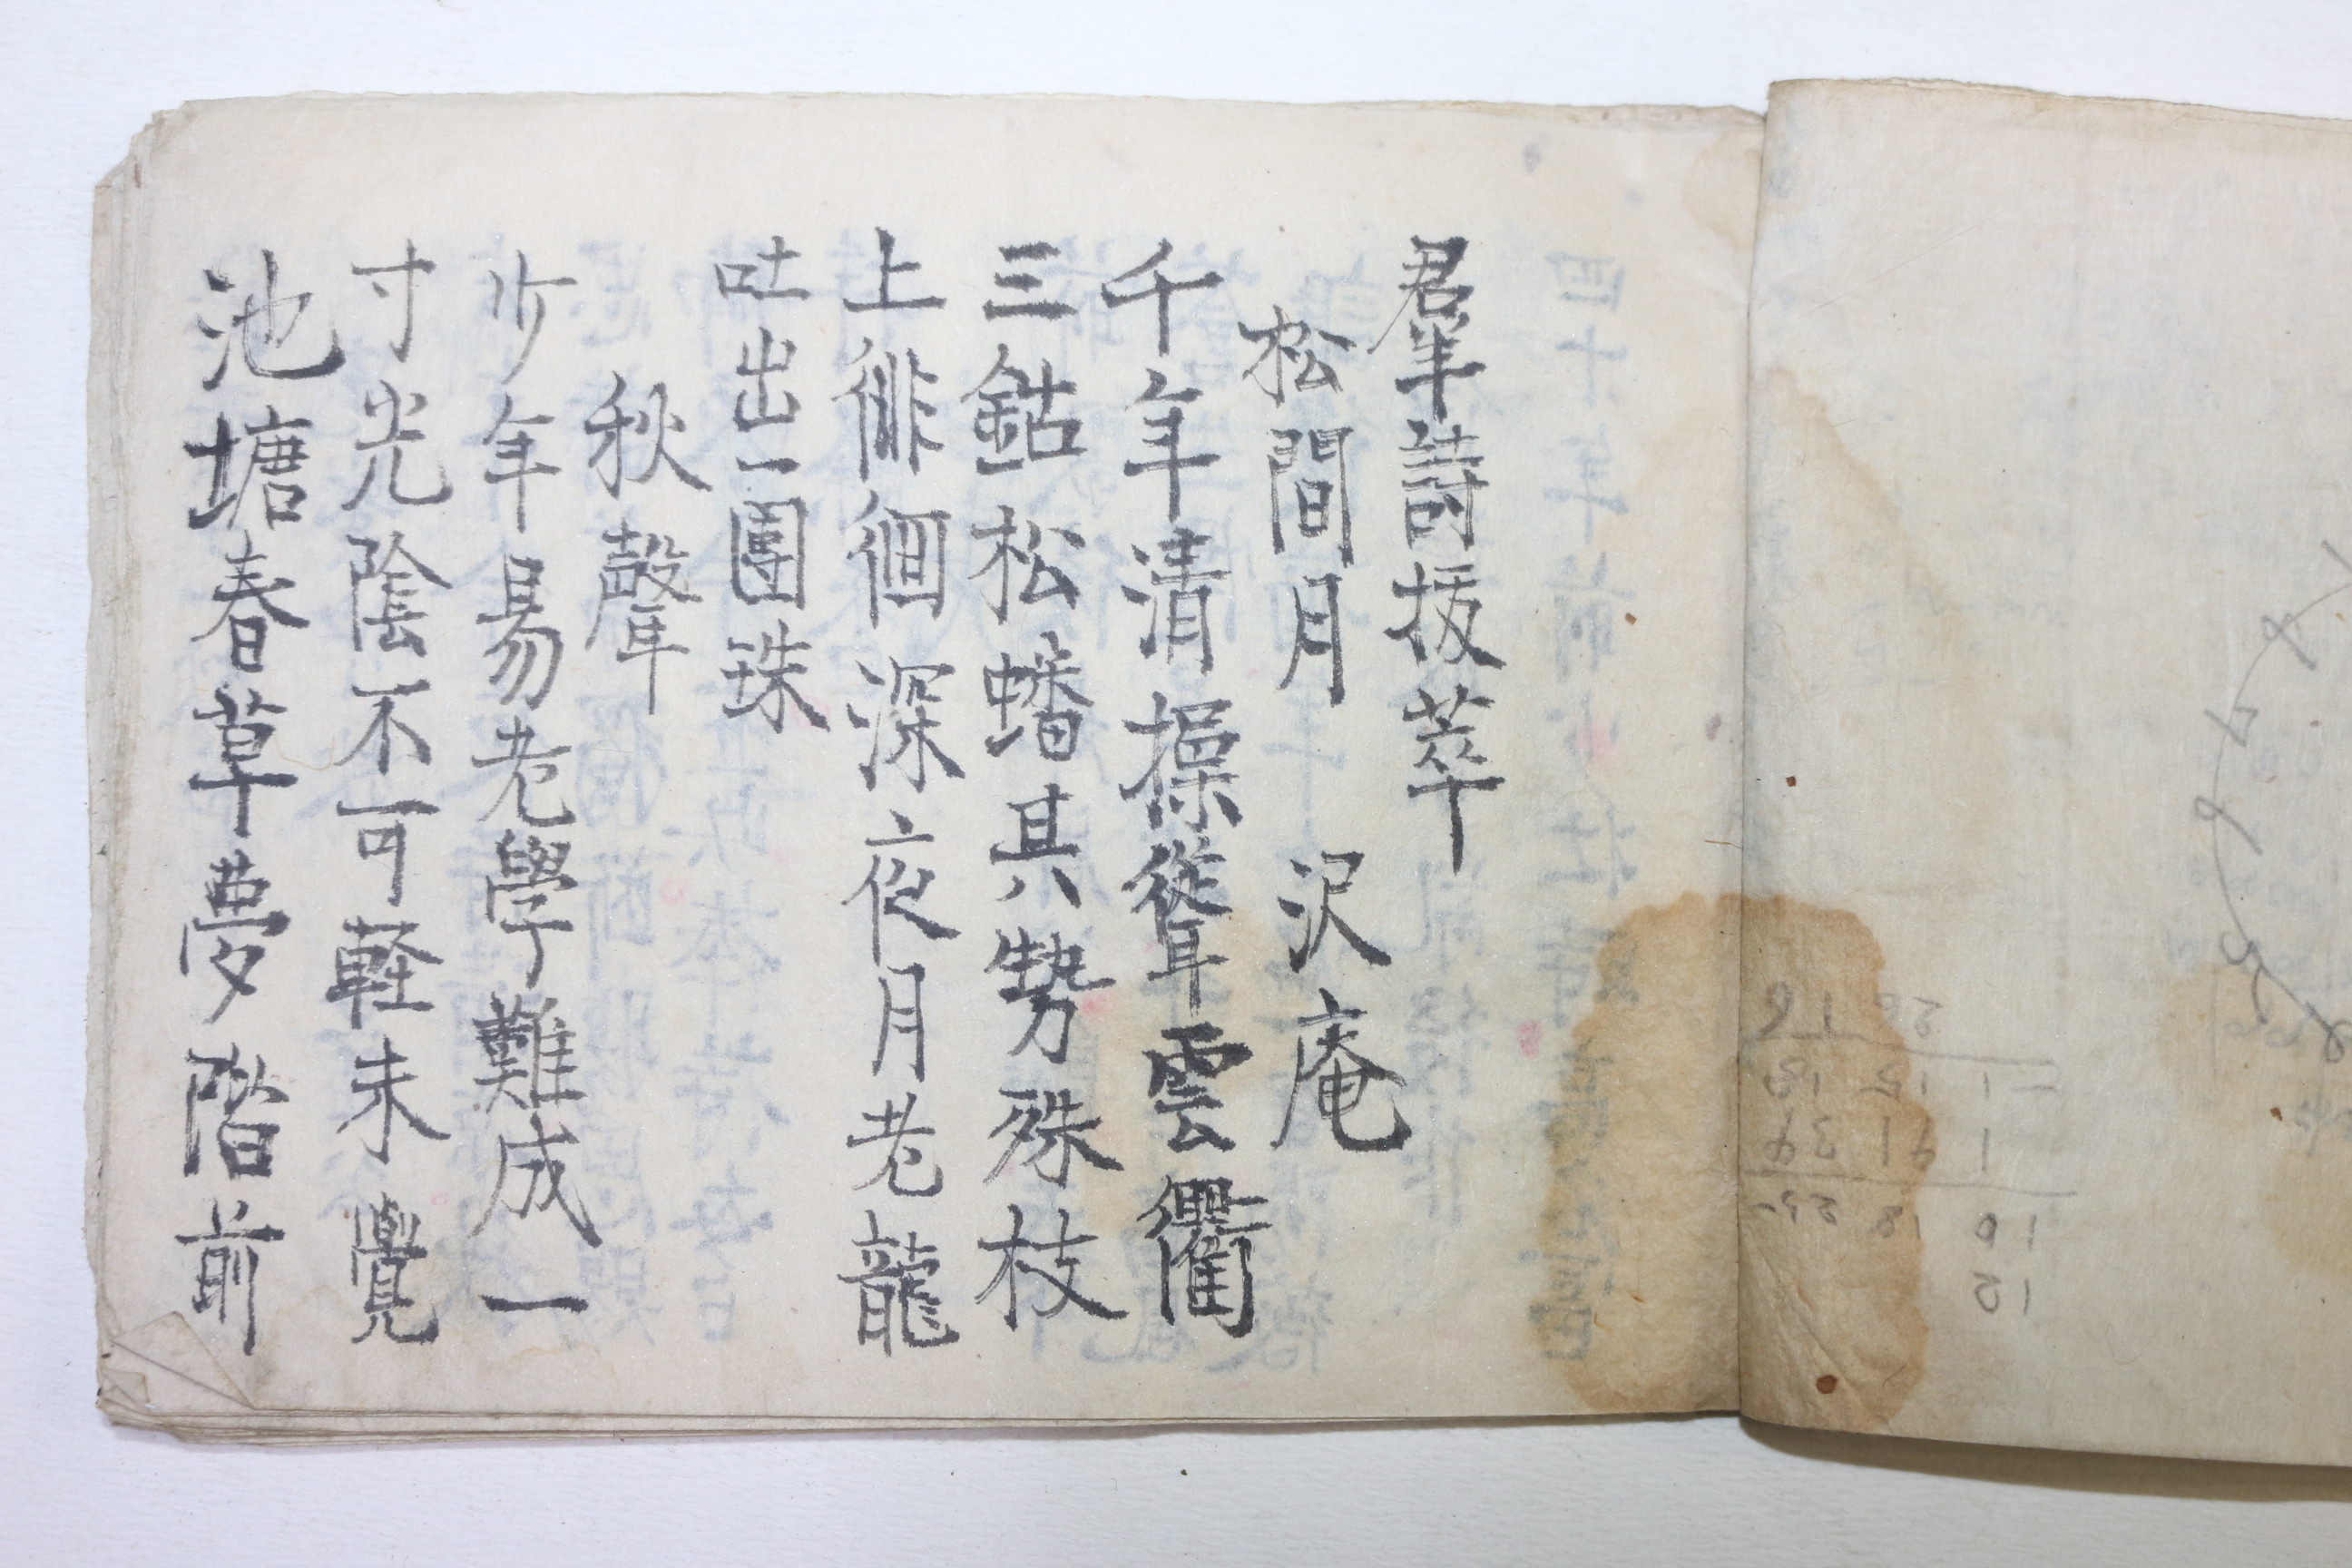 羣詩拔萃
松間月　沢庵
千年清操聳雲衢
三鈷松蟠其勢殊枝
上徘徊深夜月老龍
吐出一團珠
秋聲
少年易老學難成一
寸光陰不可軽未覺
池塘春草夢階前